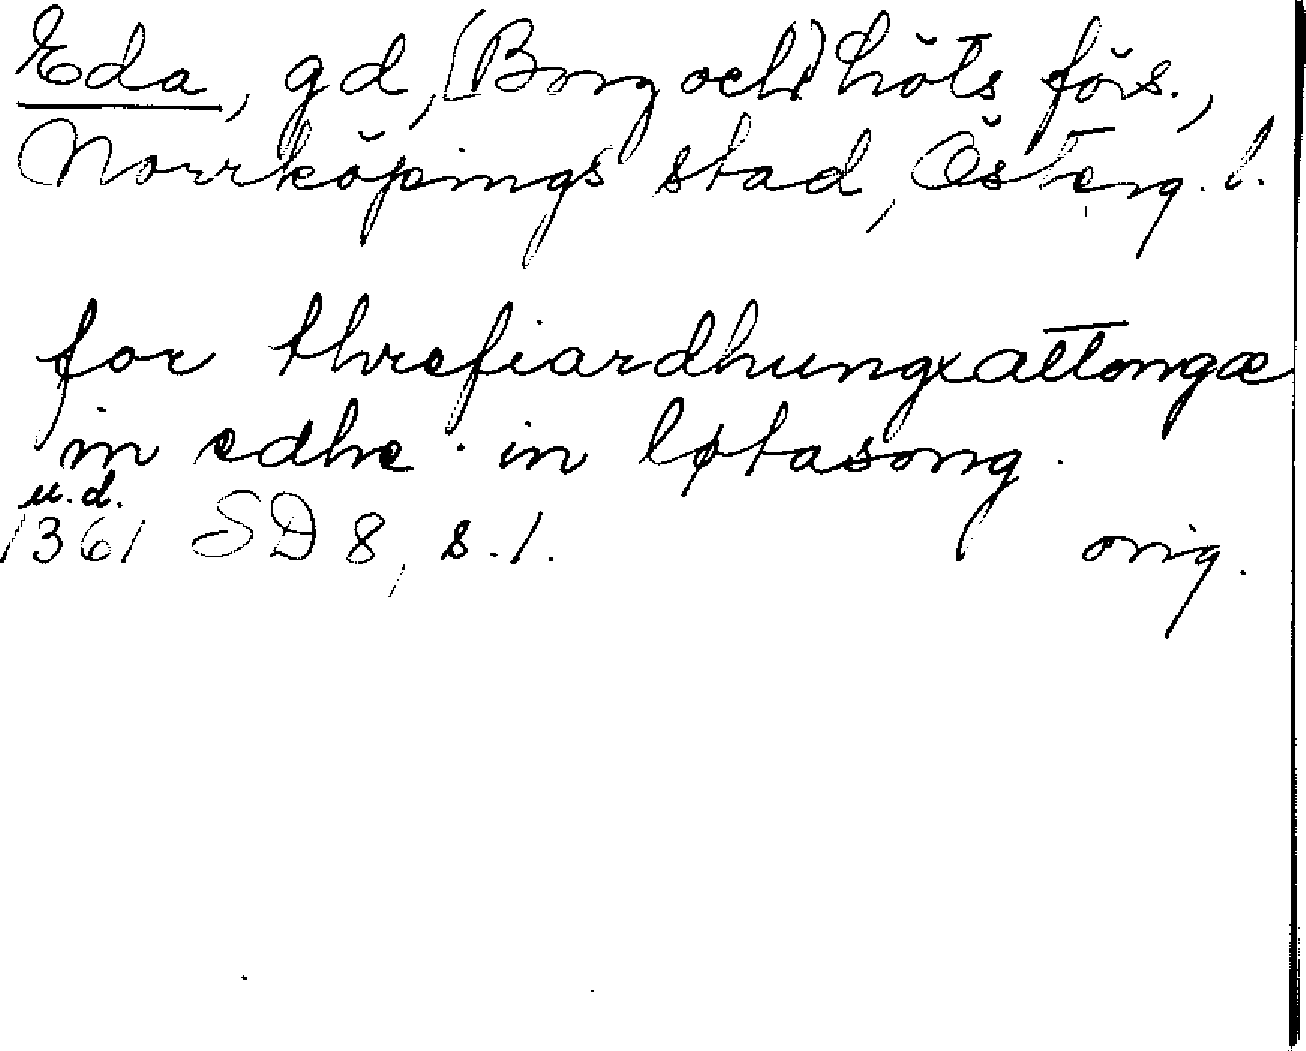 Eda, gd, (Borg och) Löts förs.,
Norrköpings stad, Österg. l.
for threfiardhungxattongæ
in edhe . in løtasong .
u.d.
1361 SD 8, s. 1. orig.